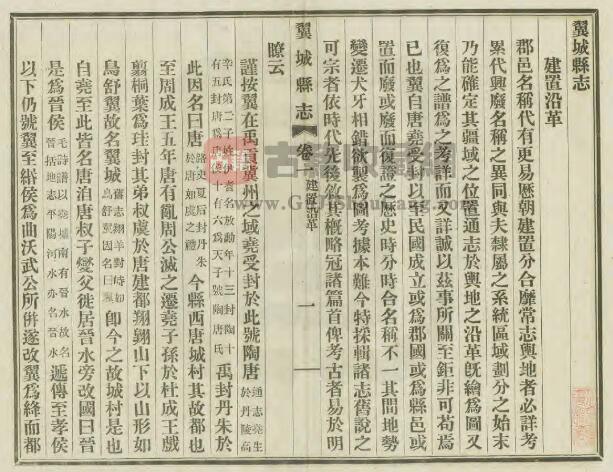 翼城縣志
建置沿革
郡邑名稱代有更易歷朝建置分合靡常志輿地者必詳考
累代興廢名稱之異同與夫隸屬之系統區域劃分之始末
乃能確定其疆域之位置通志於輿地之沿革旣繪爲圖又
復爲之譜爲之考詳而又詳誠以茲事所關至鉅非可苟焉
已也翼自唐堯受封以至民國成立或爲郡國或爲縣邑或
置而廢或廢而復證之歷史時分時合名稱不一其間地勢
變遷犬牙相錯欲製爲圖考據本難今特採輯諸志舊說之
可宗者依時代先後敘其槪略冠諸篇首俾考古者易於明
翼城縣志 卷一 建置沿革 一
瞭云
謹按翼在禹貢冀州之域堯受封於此號陶唐 通志堯生於丹陵高
辛氏第二子 名放勳年十三封陶十有五封唐 十有六爲天子號陶唐氏 禹封丹朱於
此因名曰唐 路史夏后封丹朱於唐如虞之禮 今縣西唐城村其故都也
至周成王五年唐有亂周公滅之遷堯子孫於杜成王戲
翦桐葉爲珪封其弟叔虞於唐建都翔山下以山形如
鳥舒翼故名翼城 舊志翔羊對峙如鳥舒翼因名曰翼 卽今之故城村是也
自堯至此皆名唐洎唐叔子燮父徙居晉水旁改國曰晉
是爲晉侯 毛詩譜以堯墟南有晉水故名晉括地志平陽河水亦名晉水 遞傳至孝侯
以下仍號翼至緡侯爲曲沃武公所併遂改翼爲絳而都
www.GuJiShuXiang.com